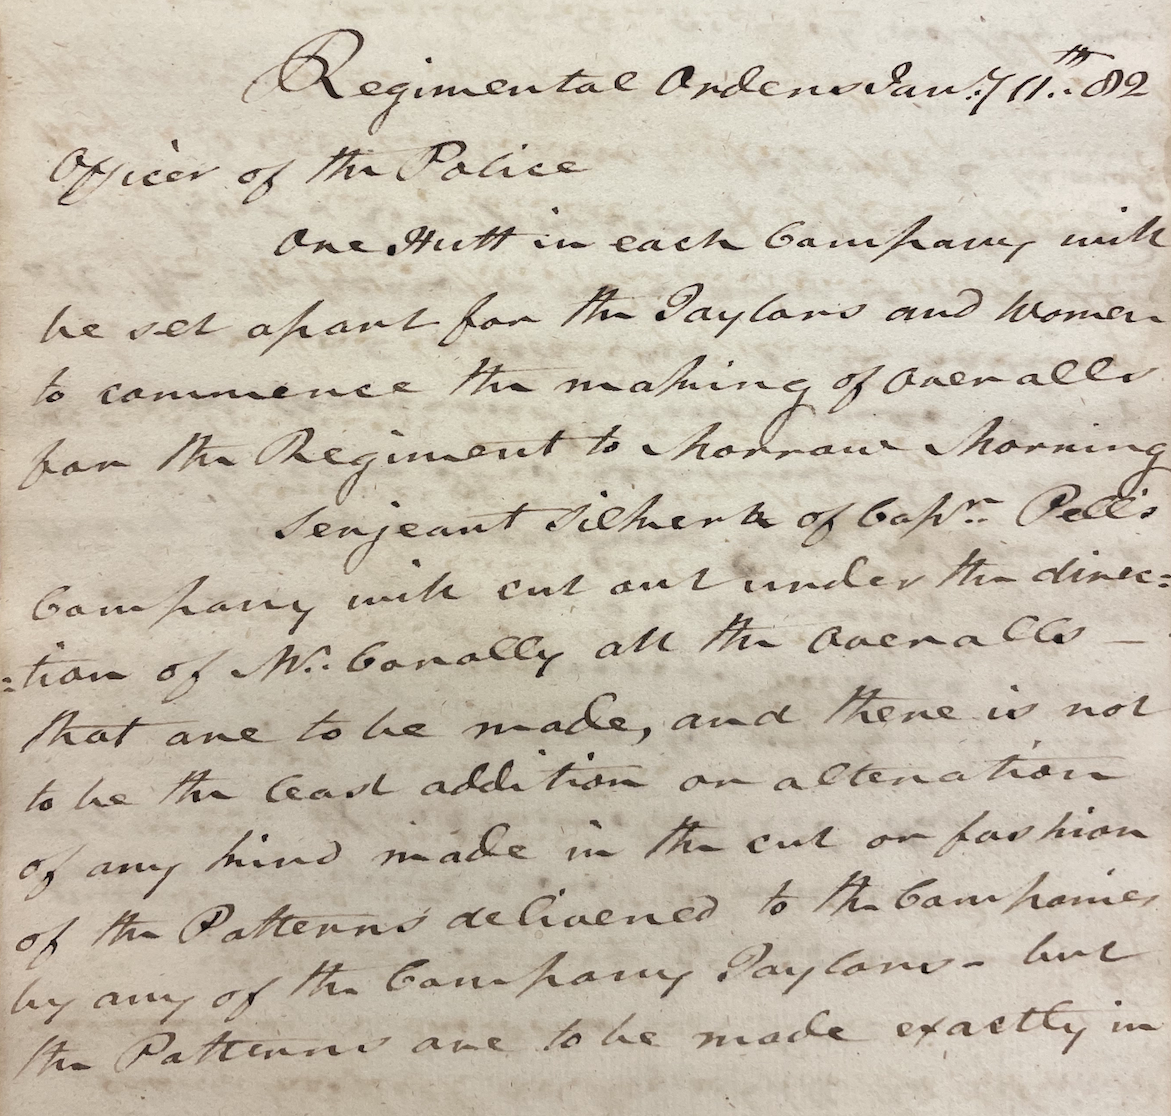 Regimental Orders Jan:y 11.th 82
Officer of the Police
One Hutt in each Company will
be set apart for the Taylors and Women
to commence the making of overalls
for the Regiment to Morrow Morning
Serjeant of Capt.n Pell's
Company will cut out under the direc=
=tion of Mr. Conolly all the Overalls —
that are to be made, and there is not
to be the least addition or alteration
of any kind made in the cut or fashion
of the Patterns delivered to the Companies
by any of the Company Taylors - but
the Patterns are to be made exactly in